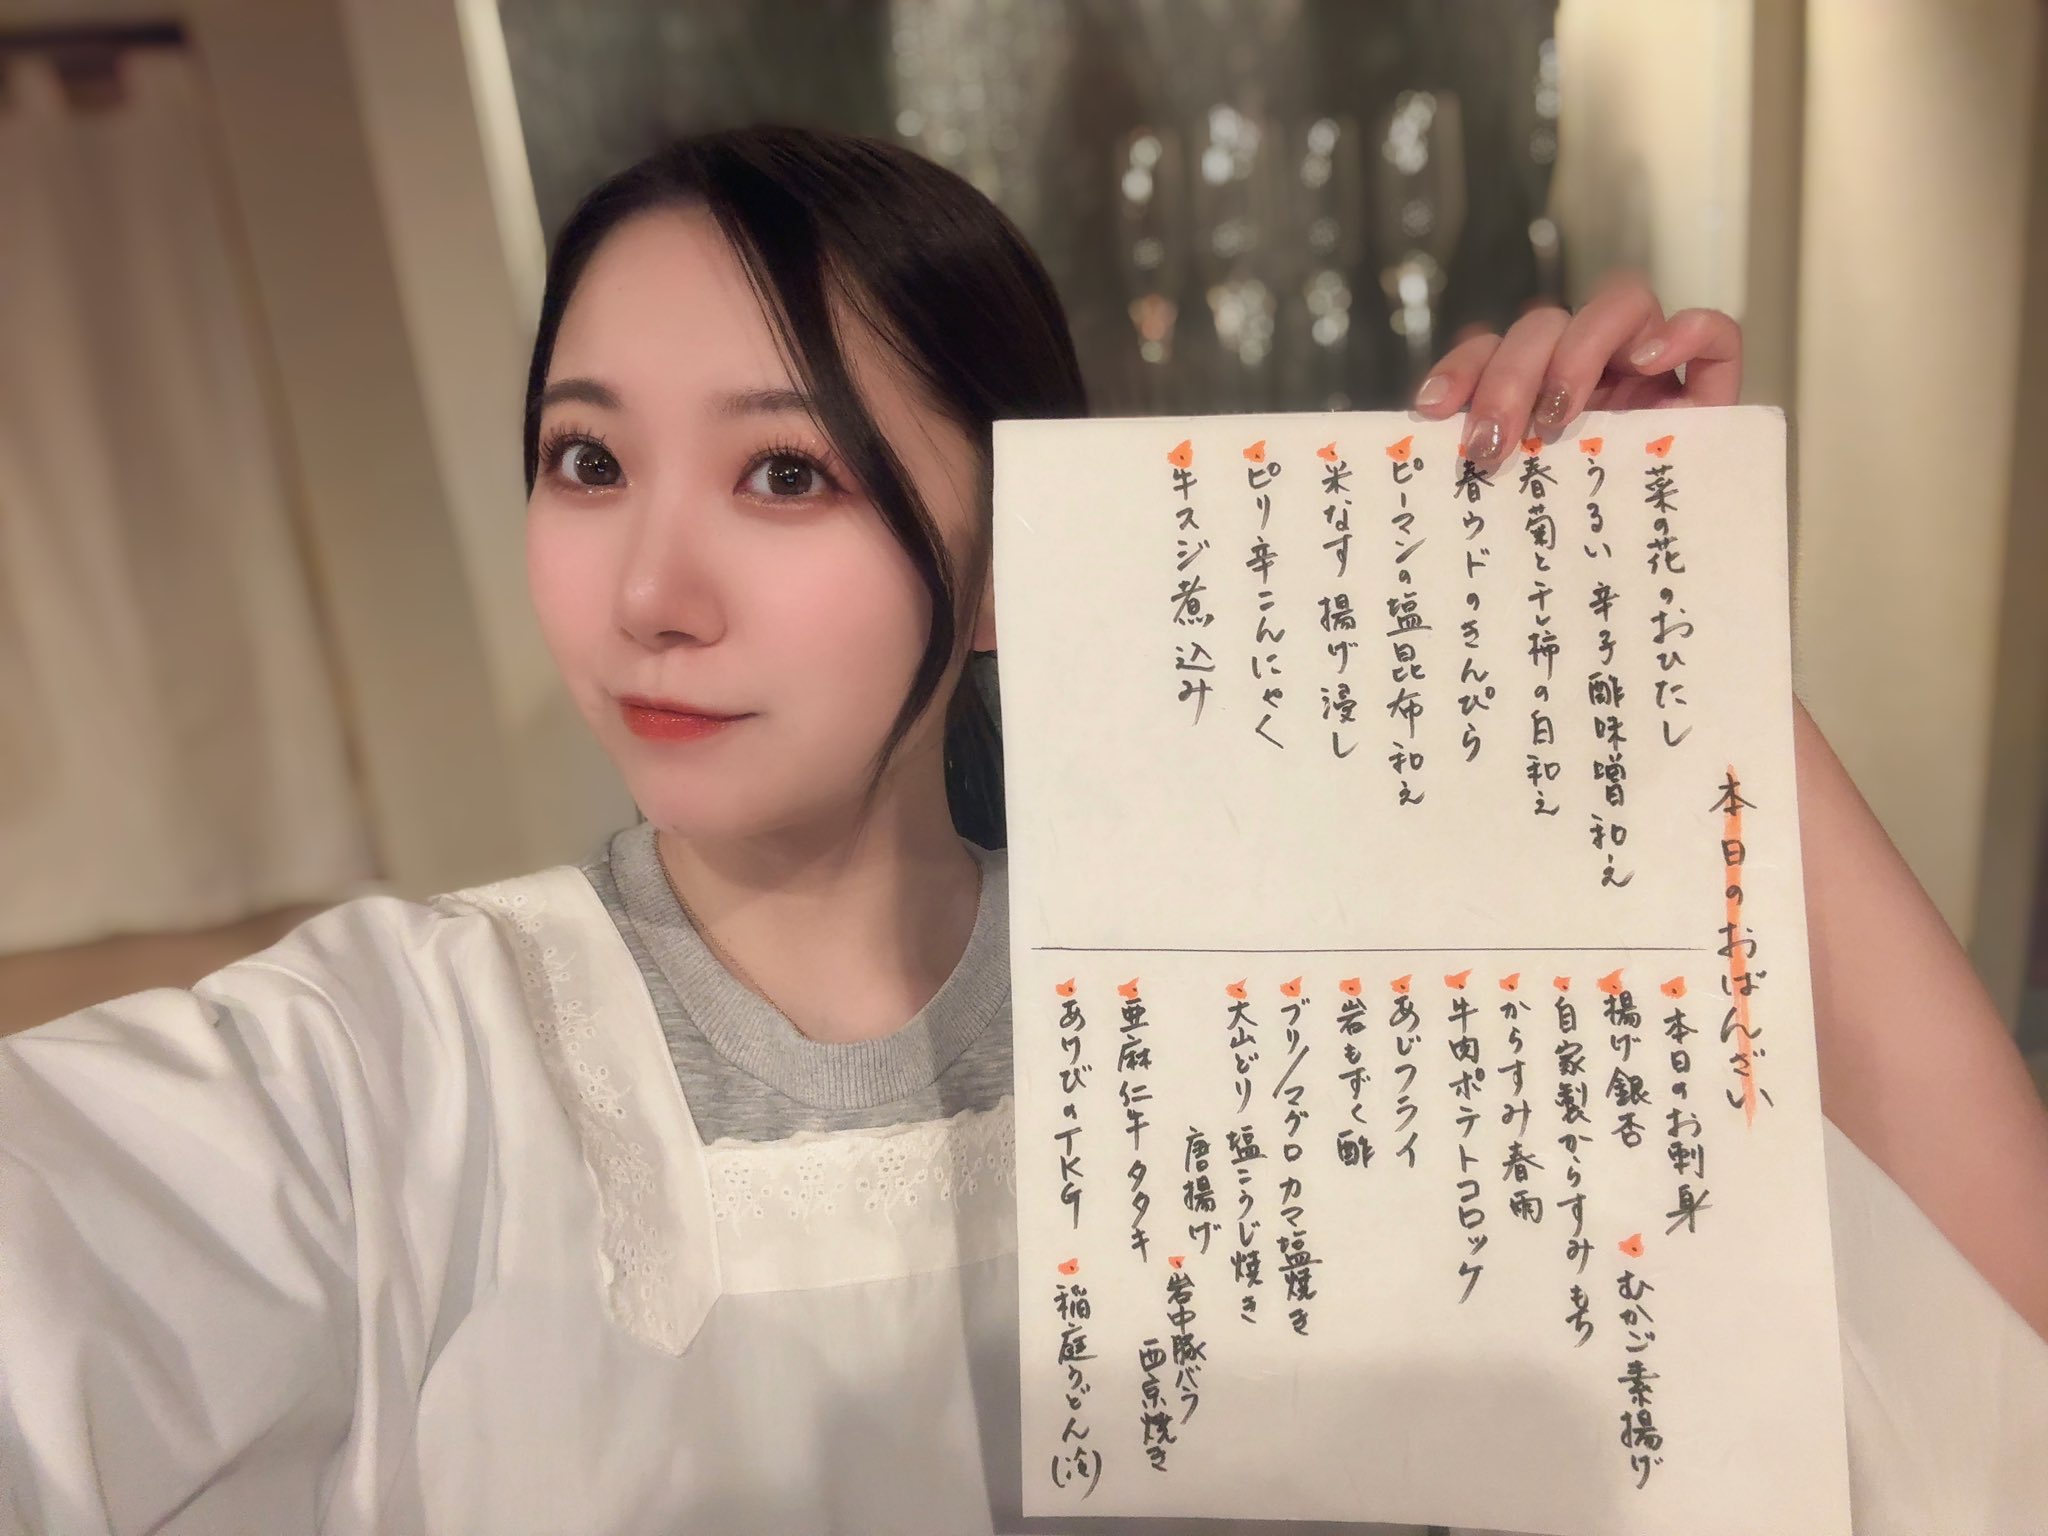 本日のおばんざい
菜の花のおひたし
うるい 辛子酢味噌和え
春菊と干し柿の白和え
春ウドのきんぴら
ピーマンの塩昆布和え
米なす 揚げ浸し
ピリ辛こんにゃく
牛スジ煮込み
本日のお刺身
揚げ銀杏
むかご素揚げ
自家製からすみもち
からすみ春雨
牛肉ポテトコロッケ
あじフライ
岩もずく酢
ブリ/マグロ カマ塩焼き
大山どり 塩こうじ焼き
唐揚げ
岩中豚バラ
西京焼き
亜麻仁牛タタキ
あけびのTKG
稲庭うどん(冷)